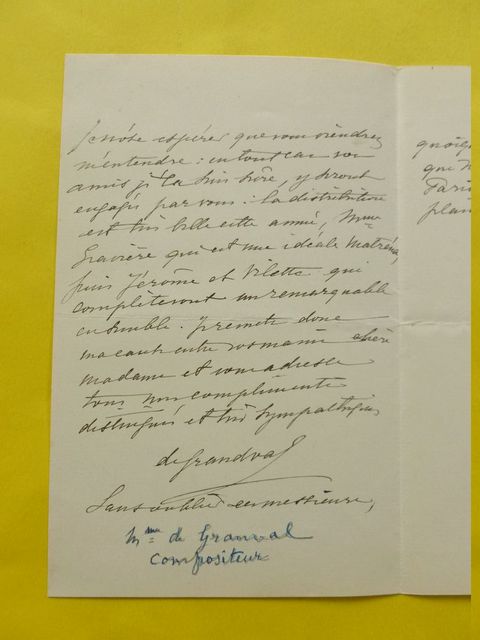 Je n'ose espérer que vous viendrez
m'entendre : en tout cas vos
amis, j'en suis sûre, y seront
engagés par vous : la distribution
est très belle cette année, Mme
Gravière qui est une idéale Matréna,
puis Jérôme et Villette qui
complèteront un remarquable
ensemble. Je remets donc
ma cause entre vos mains chère
madame et vous adresse
tous mes compliments
distingués et très sympathiques
de Grandval
Sans oublier ces messieurs,
Mme de Granval
compositeur
quoiq
que
Paris
plai